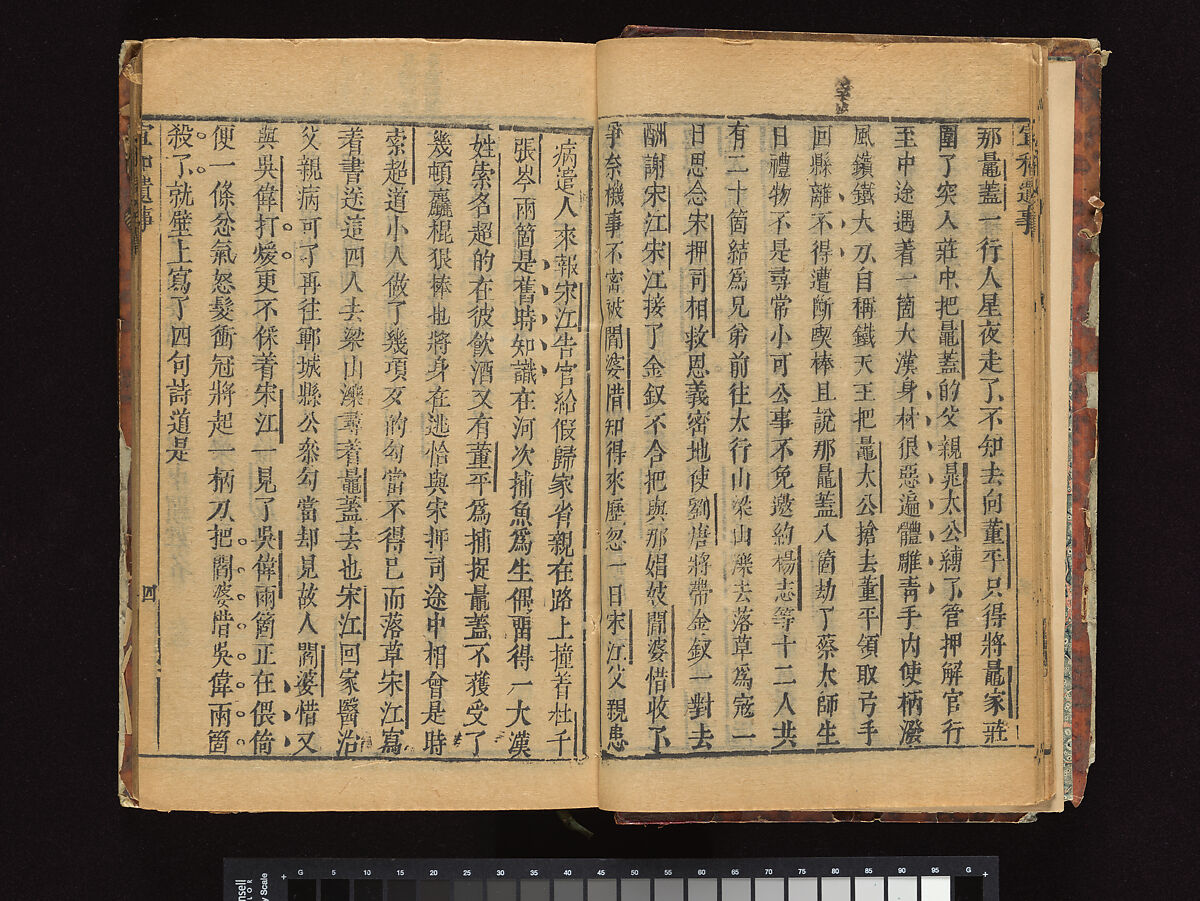 宣和遺事
那鼂蓋一行人星夜走了不知去向董平只得將鼂家莊
圍了突入莊中把鼂蓋的父親晁太公縛了管押解官行
至中途遇着一箇大漢身材狠惡遍體雕靑手內使柄潑
風鑌鐵大刀自稱鐵天王把鼂太公搶去董平領取弓手
回縣離不得遭斷喫棒且說那鼂蓋八箇劫了蔡太師生
日禮物不是尋常小可公事不免邀約楊志等十二人共
有二十箇結爲兄弟前往太行山梁山濼去落草爲寇一
日思念宋押司相救恩義密地使劉唐將帶金釵一對去
酬謝宋江宋江接了金釵不合把與那娼妓閻婆惜收下
爭奈機事不密被閻婆惜知得來歷忽一日宋江父親患
病遣人來報宋江告官給假歸家省親在路上撞着杜千
張岑兩箇是舊時知識在河次捕魚爲生偶畱得一大漢
姓索名超的在彼飮酒又有董平爲捕捉鼂蓋不獲受了
幾頓麤棍狠棒也將身在逃恰與宋押司途中相會是時
索超道小人做了幾項歹的勾當不得已而落草宋江寫
着書送這四人去梁山濼尋着鼂蓋去也宋江回家醫治
父親病可了再往鄆城縣公叅勾當却見故人閻婆惜又
與吳偉打煖更不倸着宋江一見了吳偉兩箇正在偎倚
便一條忿氣怒髮衝冠將起一柄刀把閻婆惜吳偉兩箇
殺了就壁上寫了四句詩道是
宣和遺事
四